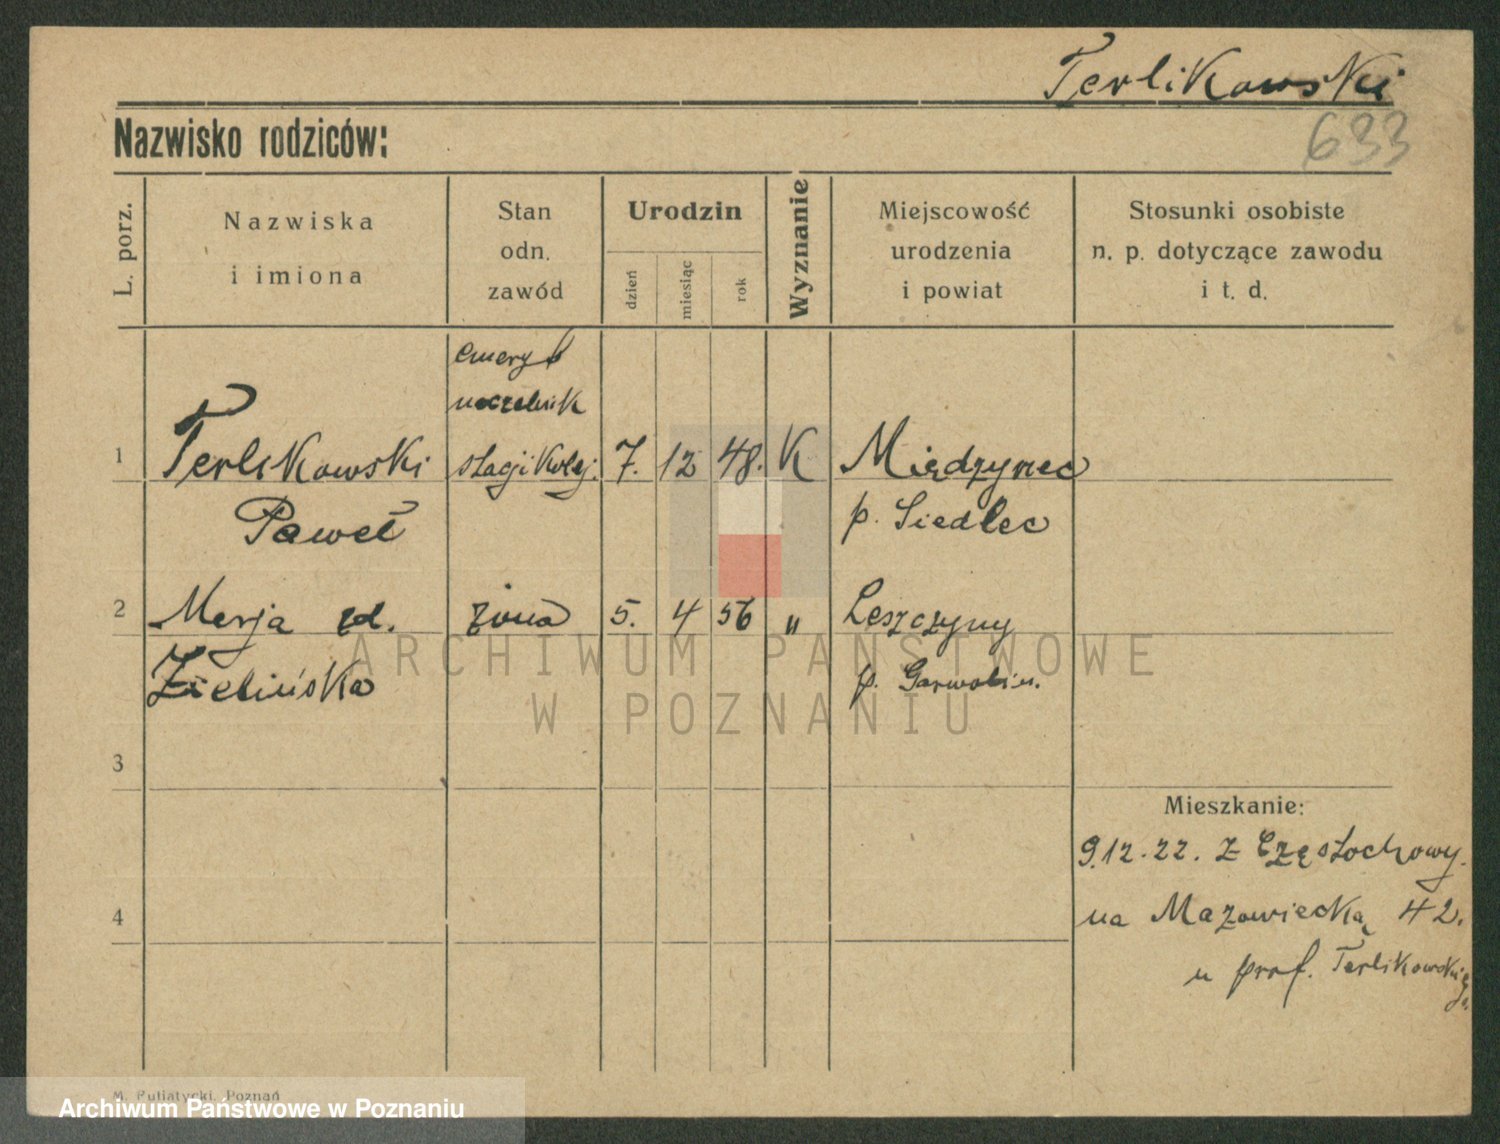 Terlikowski
633
Nazwisko rodziców:
L. porz.
Nazwiska
i imiona
Stan
odn.
zawód
Urodzin
dzień
miesiąc
rok
Wyznanie
Miejscowość
urodzenia
i powiat
Stosunki osobiste
n. p. dotyczące zawodu
i t. d.
emeryt
naczelnik
1 Terlikowski stacji kolej. 7. 12 48. K Międzyrzec
Paweł p. Siedlec
2 Marja zd. żona 5. 4 56 " Leszczyny
Zielińska p. Garwolin.
3
4
Mieszkanie:
9.12.22. z Częstochowy.
na Mazowiecką 42.
u prof. Terlikowskiego.
ARCHIWUM PAŃSTWOWE
W POZNANIU
M. Putiatycki, Poznań
Archiwum Państwowe w Poznaniu